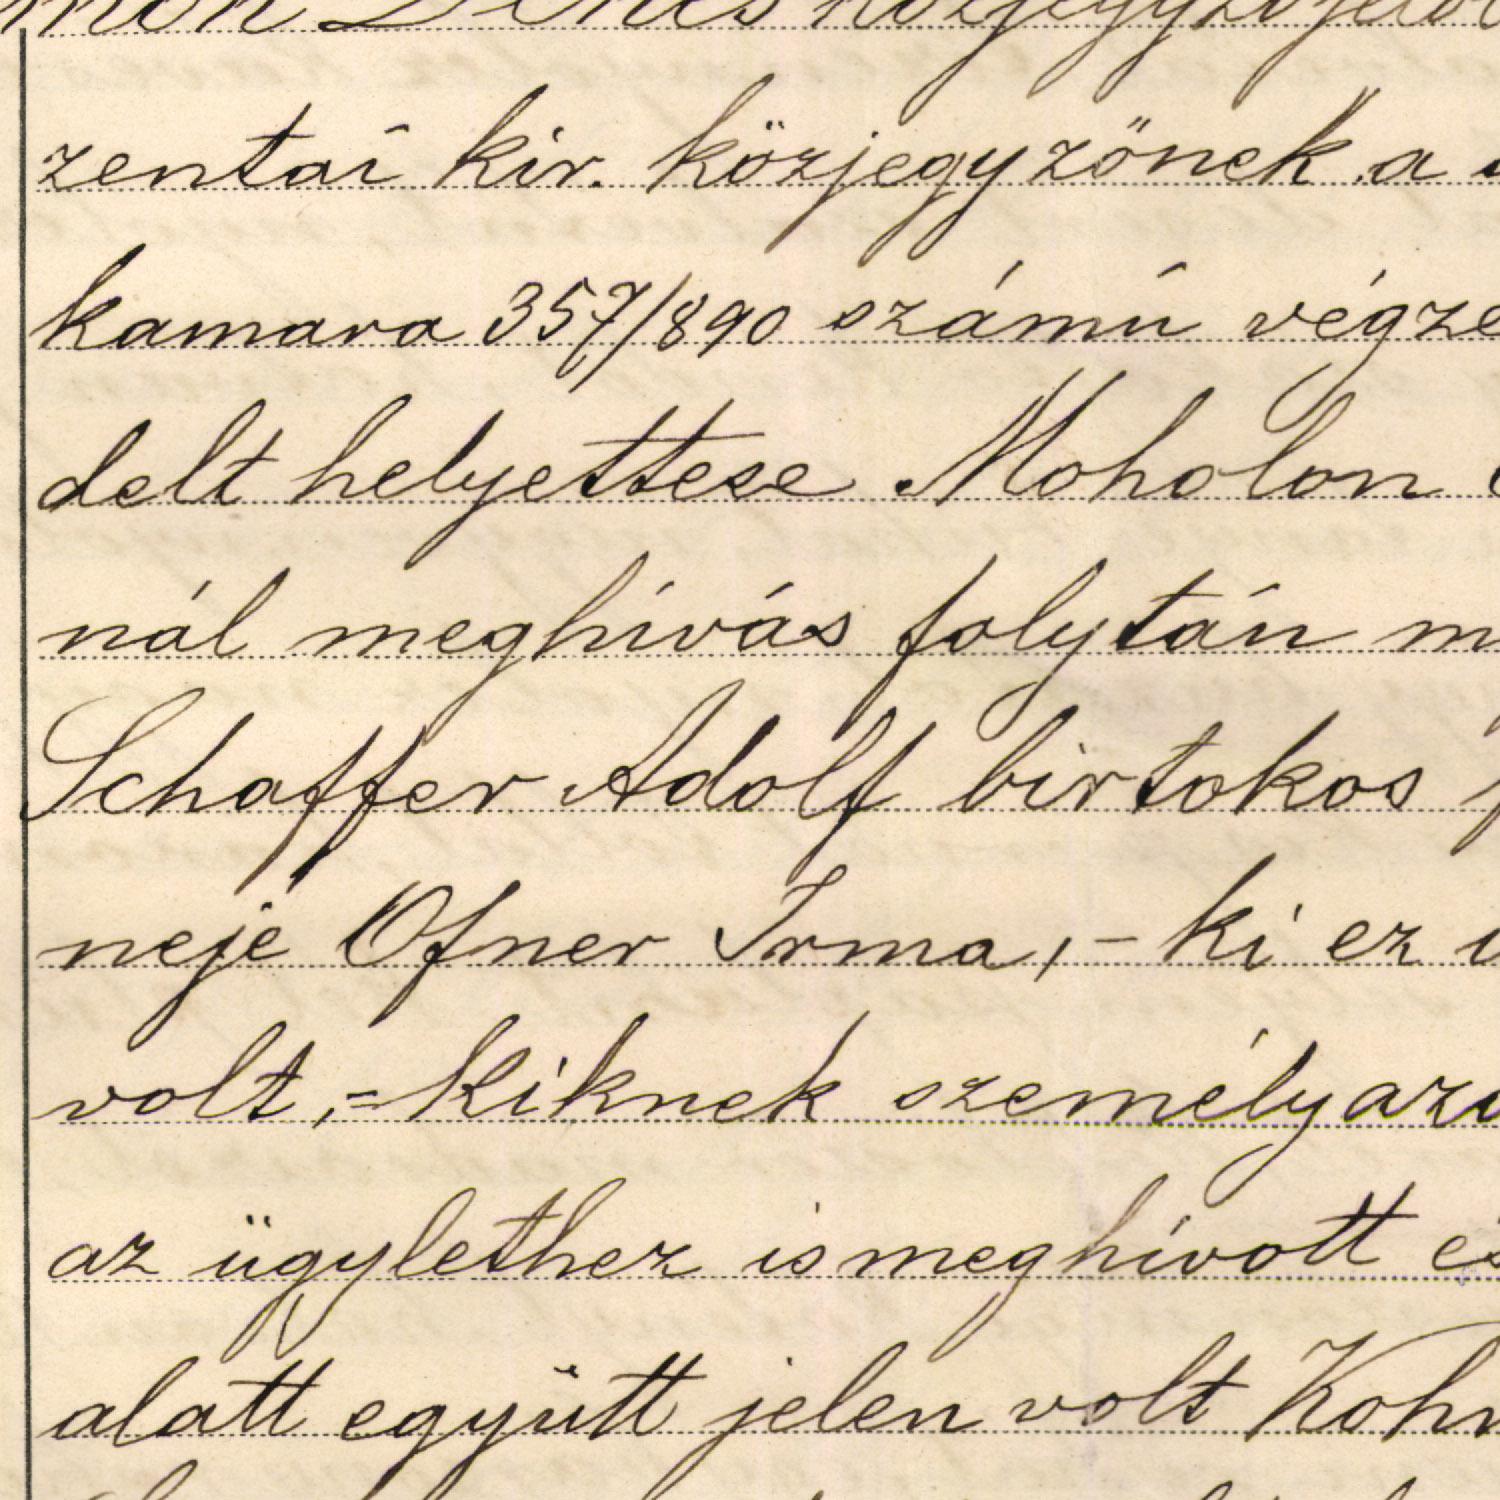 zentai kir. közjegyzőnek a
kamara 357/890 számú végze
delt helyettese Moholon
nál meghívás folytán m
Schaffer Adolf birtokos
neje Ofner Irma, - ki ez
volt, = kiknek személyazo
az ügylethez is meghívott és
alatt együtt jelen volt Kohn